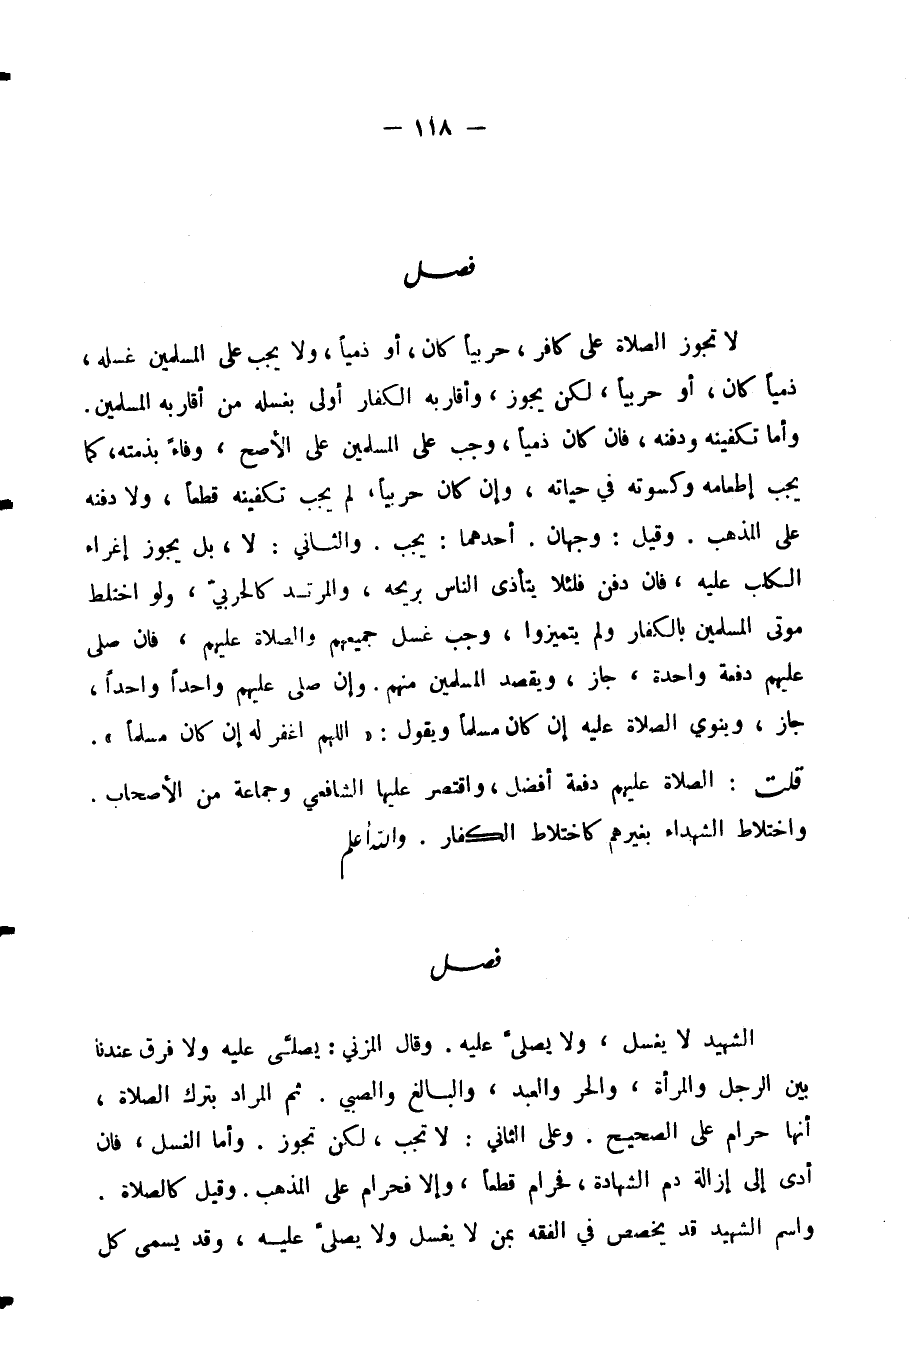 — ١١٨ —
فصل
لا تجوز الصلاة على كافر ، حربياً كان ، أو ذمياً ، ولا يجب على المسلمين غسله ،
ذمياً كان ، أو حربياً ، لكن يجوز ، وأقاربه الكفار أولى بغسله من أقاربه المسلمين .
وأما تكفينه ودفنه ، فان كان ذمياً ، وجب على المسلمين على الأصح ، وفاءً بذمته ، كما
يجب إطعامه وكسوته في حياته ، وإن كان حربياً ، لم يجب تكفينه قطعاً ، ولا دفنه
على المذهب . وقيل : وجهان . أحدهما : يجب . والثاني : لا ، بل يجوز إغراء
الكلب عليه ، فان دفن فلئلا يتأذى الناس بريحه ، والمرتد كالحربيّ ، ولو اختلط
موتى المسلمين بالكفار ولم يتميزوا ، وجب غسل جميعهم والصلاة عليهم ، فان صلى
عليهم دفعة واحدة ، جاز ، ويقصد المسلمين منهم . وإن صلى عليهم واحداً واحداً ،
جاز ، وينوي الصلاة عليه إن كان مسلماً ويقول : « اللهم اغفر له إن كان مسلماً » .
قلت : الصلاة عليهم دفعة أفضل ، واقتصر عليها الشافعي وجماعة من الأصحاب .
واختلاط الشهداء بغيرهم كاختلاط الكفار . والله أعلم
فصل
الشهيد لا يغسل ، ولا يصلىّ عليه . وقال المزني : يصلىّ عليه ولا فرق عندنا
بين الرجل والمرأة ، والحر والعبد ، والبالغ والصبي . ثم المراد بترك الصلاة ،
أنها حرام على الصحيح . وعلى الثاني : لا تجب ، لكن تجوز . وأما الغسل ، فان
أدى إلى إزالة دم الشهادة ، فحرام قطعاً ، وإلا فحرام على المذهب . وقيل كالصلاة .
واسم الشهيد قد يخصص في الفقه بمن لا يغسل ولا يصلىّ عليه ، وقد يسمى كل